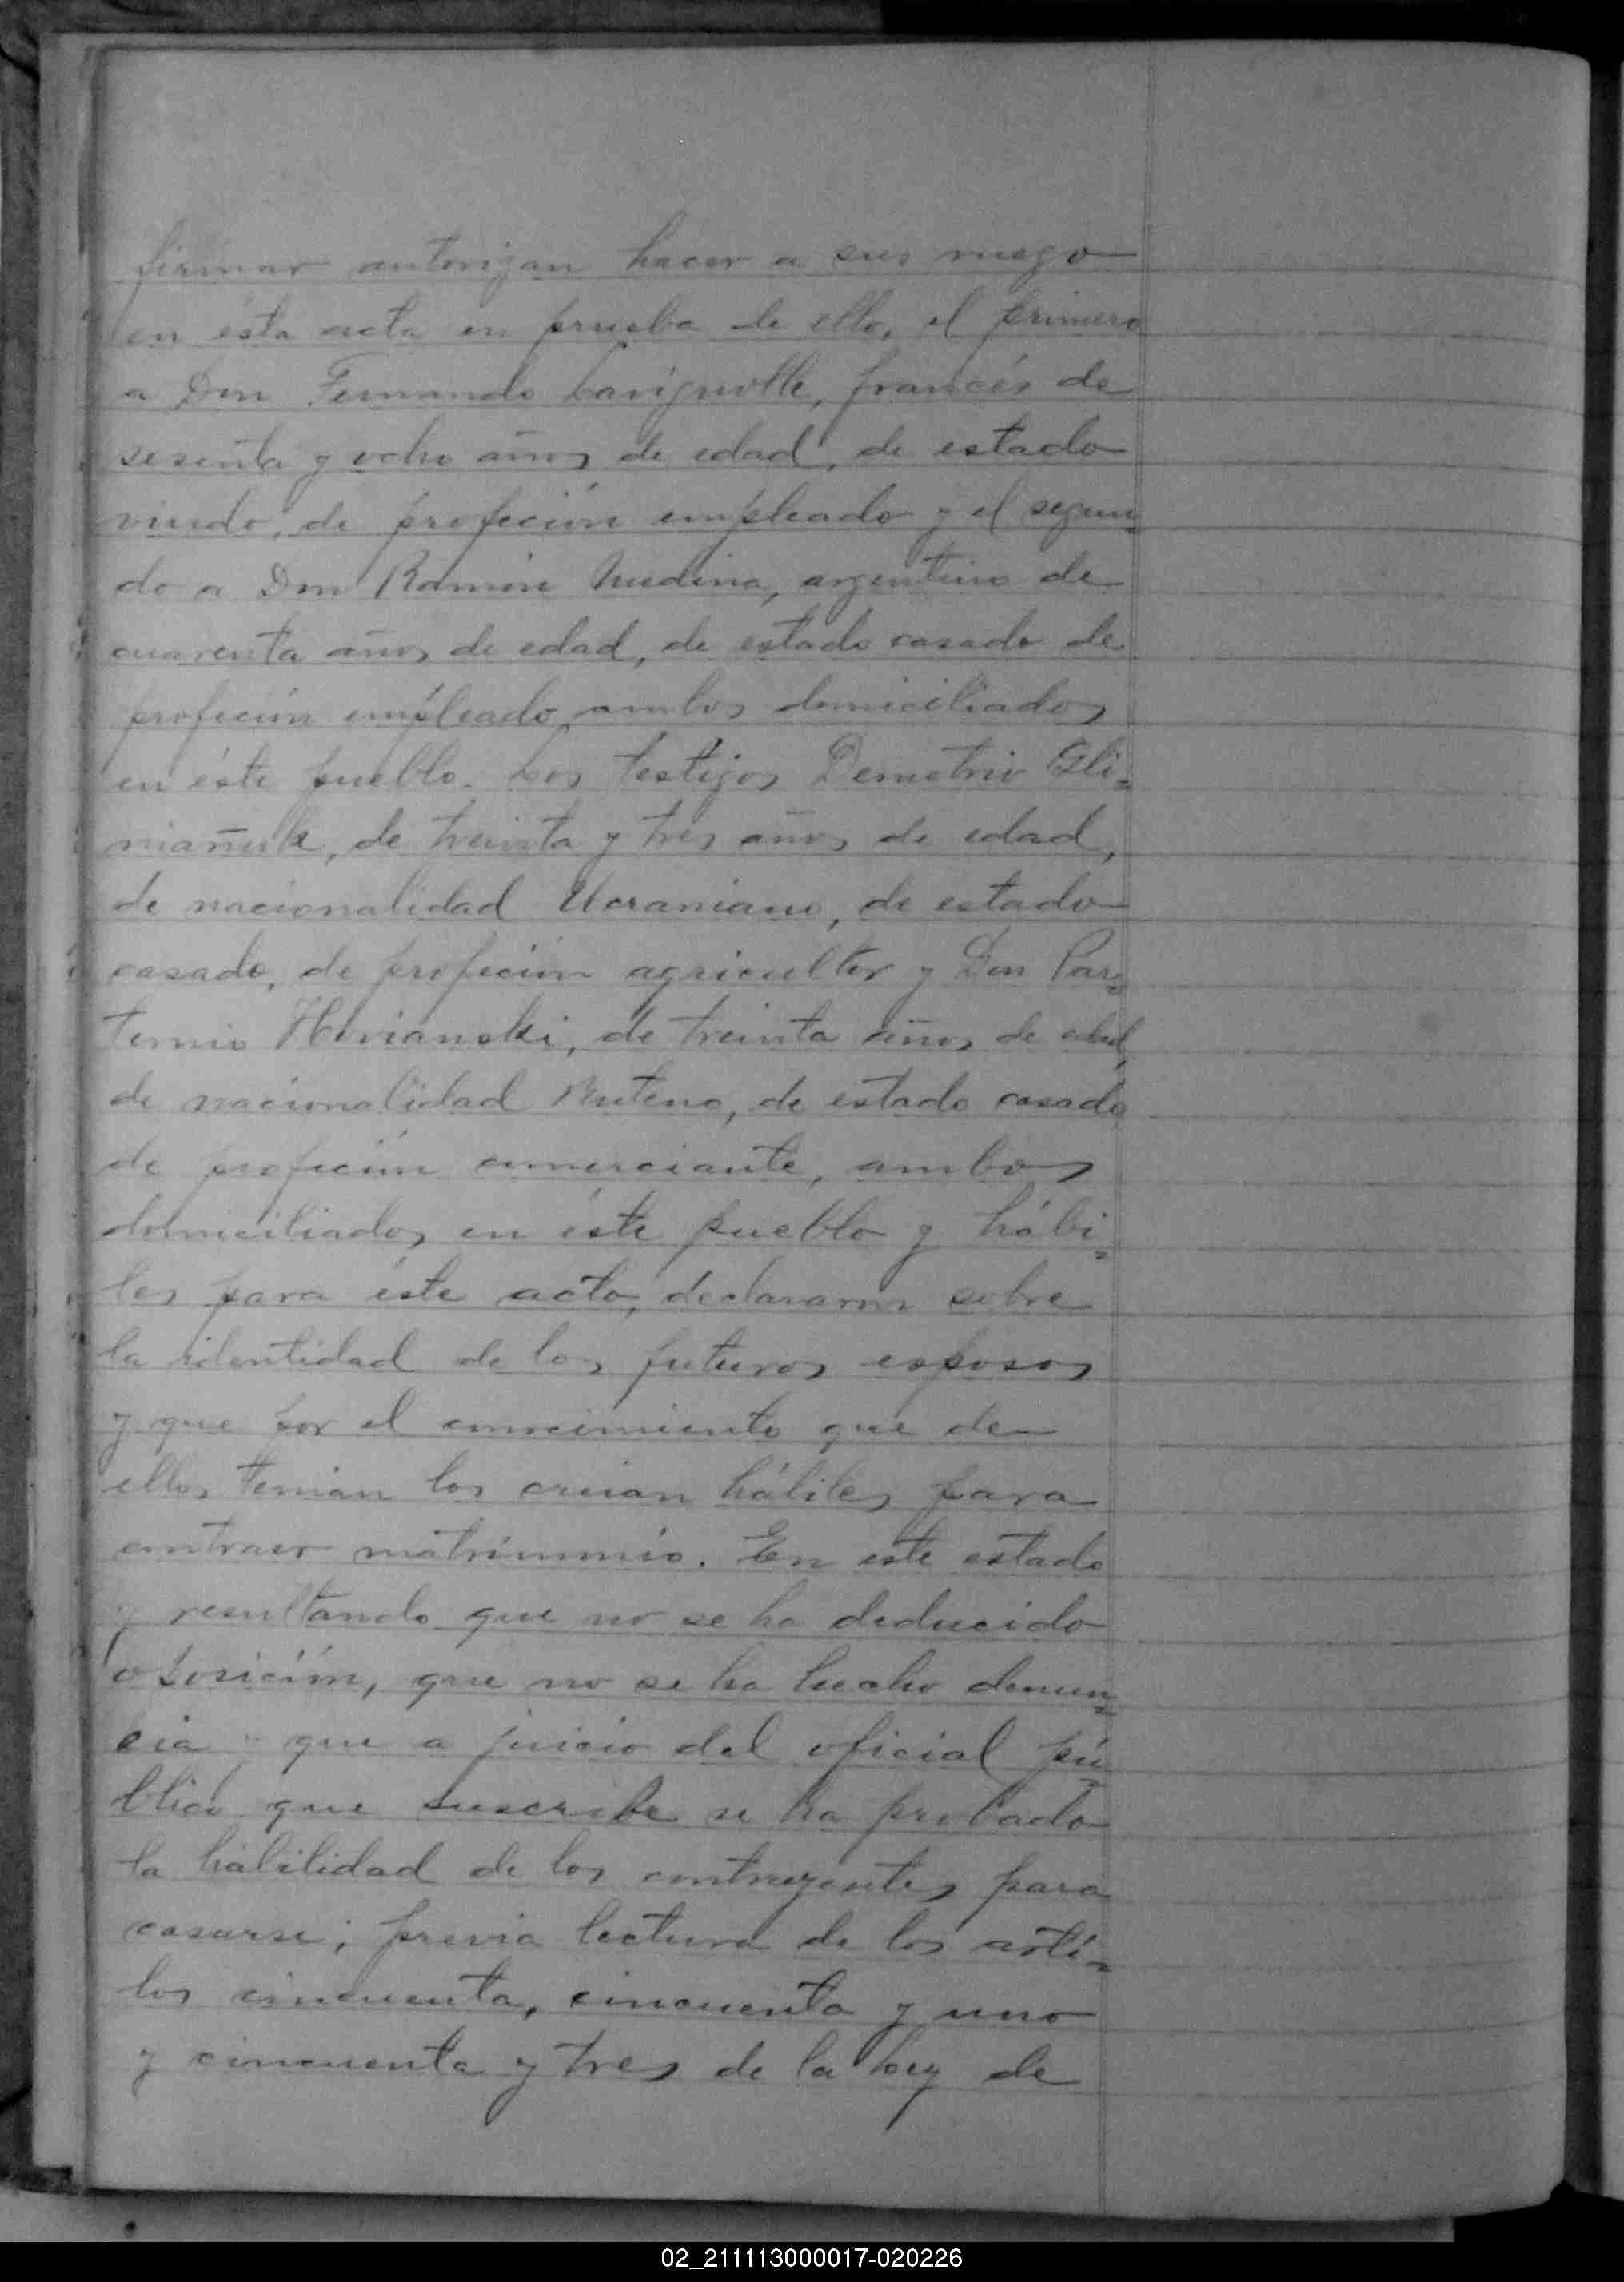 firmar autorizan hacer a sus ruego
en ésta acta en prueba de ello, el primero
a Don Fernando Lavignolle, francés de
sesenta y ocho años de edad, de estado
viudo, de profeción empleado y el segun=
do a Don Ramón Medina, argentino de
cuarenta años de edad, de estado casado de
profeción empleado ambos domiciliados
en éste pueblo. Los testigos Demetrio Gli=
niañuk, de treinta y tres años de edad,
de nacionalidad Ucraniano, de estado
casado, de profeción agricultor y Don Par=
temio Hovianski, de treinta años de edad,
de nacionalidad Ruteno, de estado casado
de profeción comerciante, ambos
domiciliados en éste pueblo y hábi=
les para éste acto, declararon sobre
la identidad de los futuros esposos
y que por el conocimiento que de
ellos tenian los creian hábiles para
contraer matrimonio. En este estado
y resultando que no se ha deducido
oposición, que no se ha hecho denun=
cia y que a juicio del oficial pú=
blico que suscribe se ha probado
la habilidad de los contrayentes para
casarse; previa lectura de los artí=
los cincuenta, cincuenta y uno
y cincuenta y tres de la Ley de
02_211113000017-020226